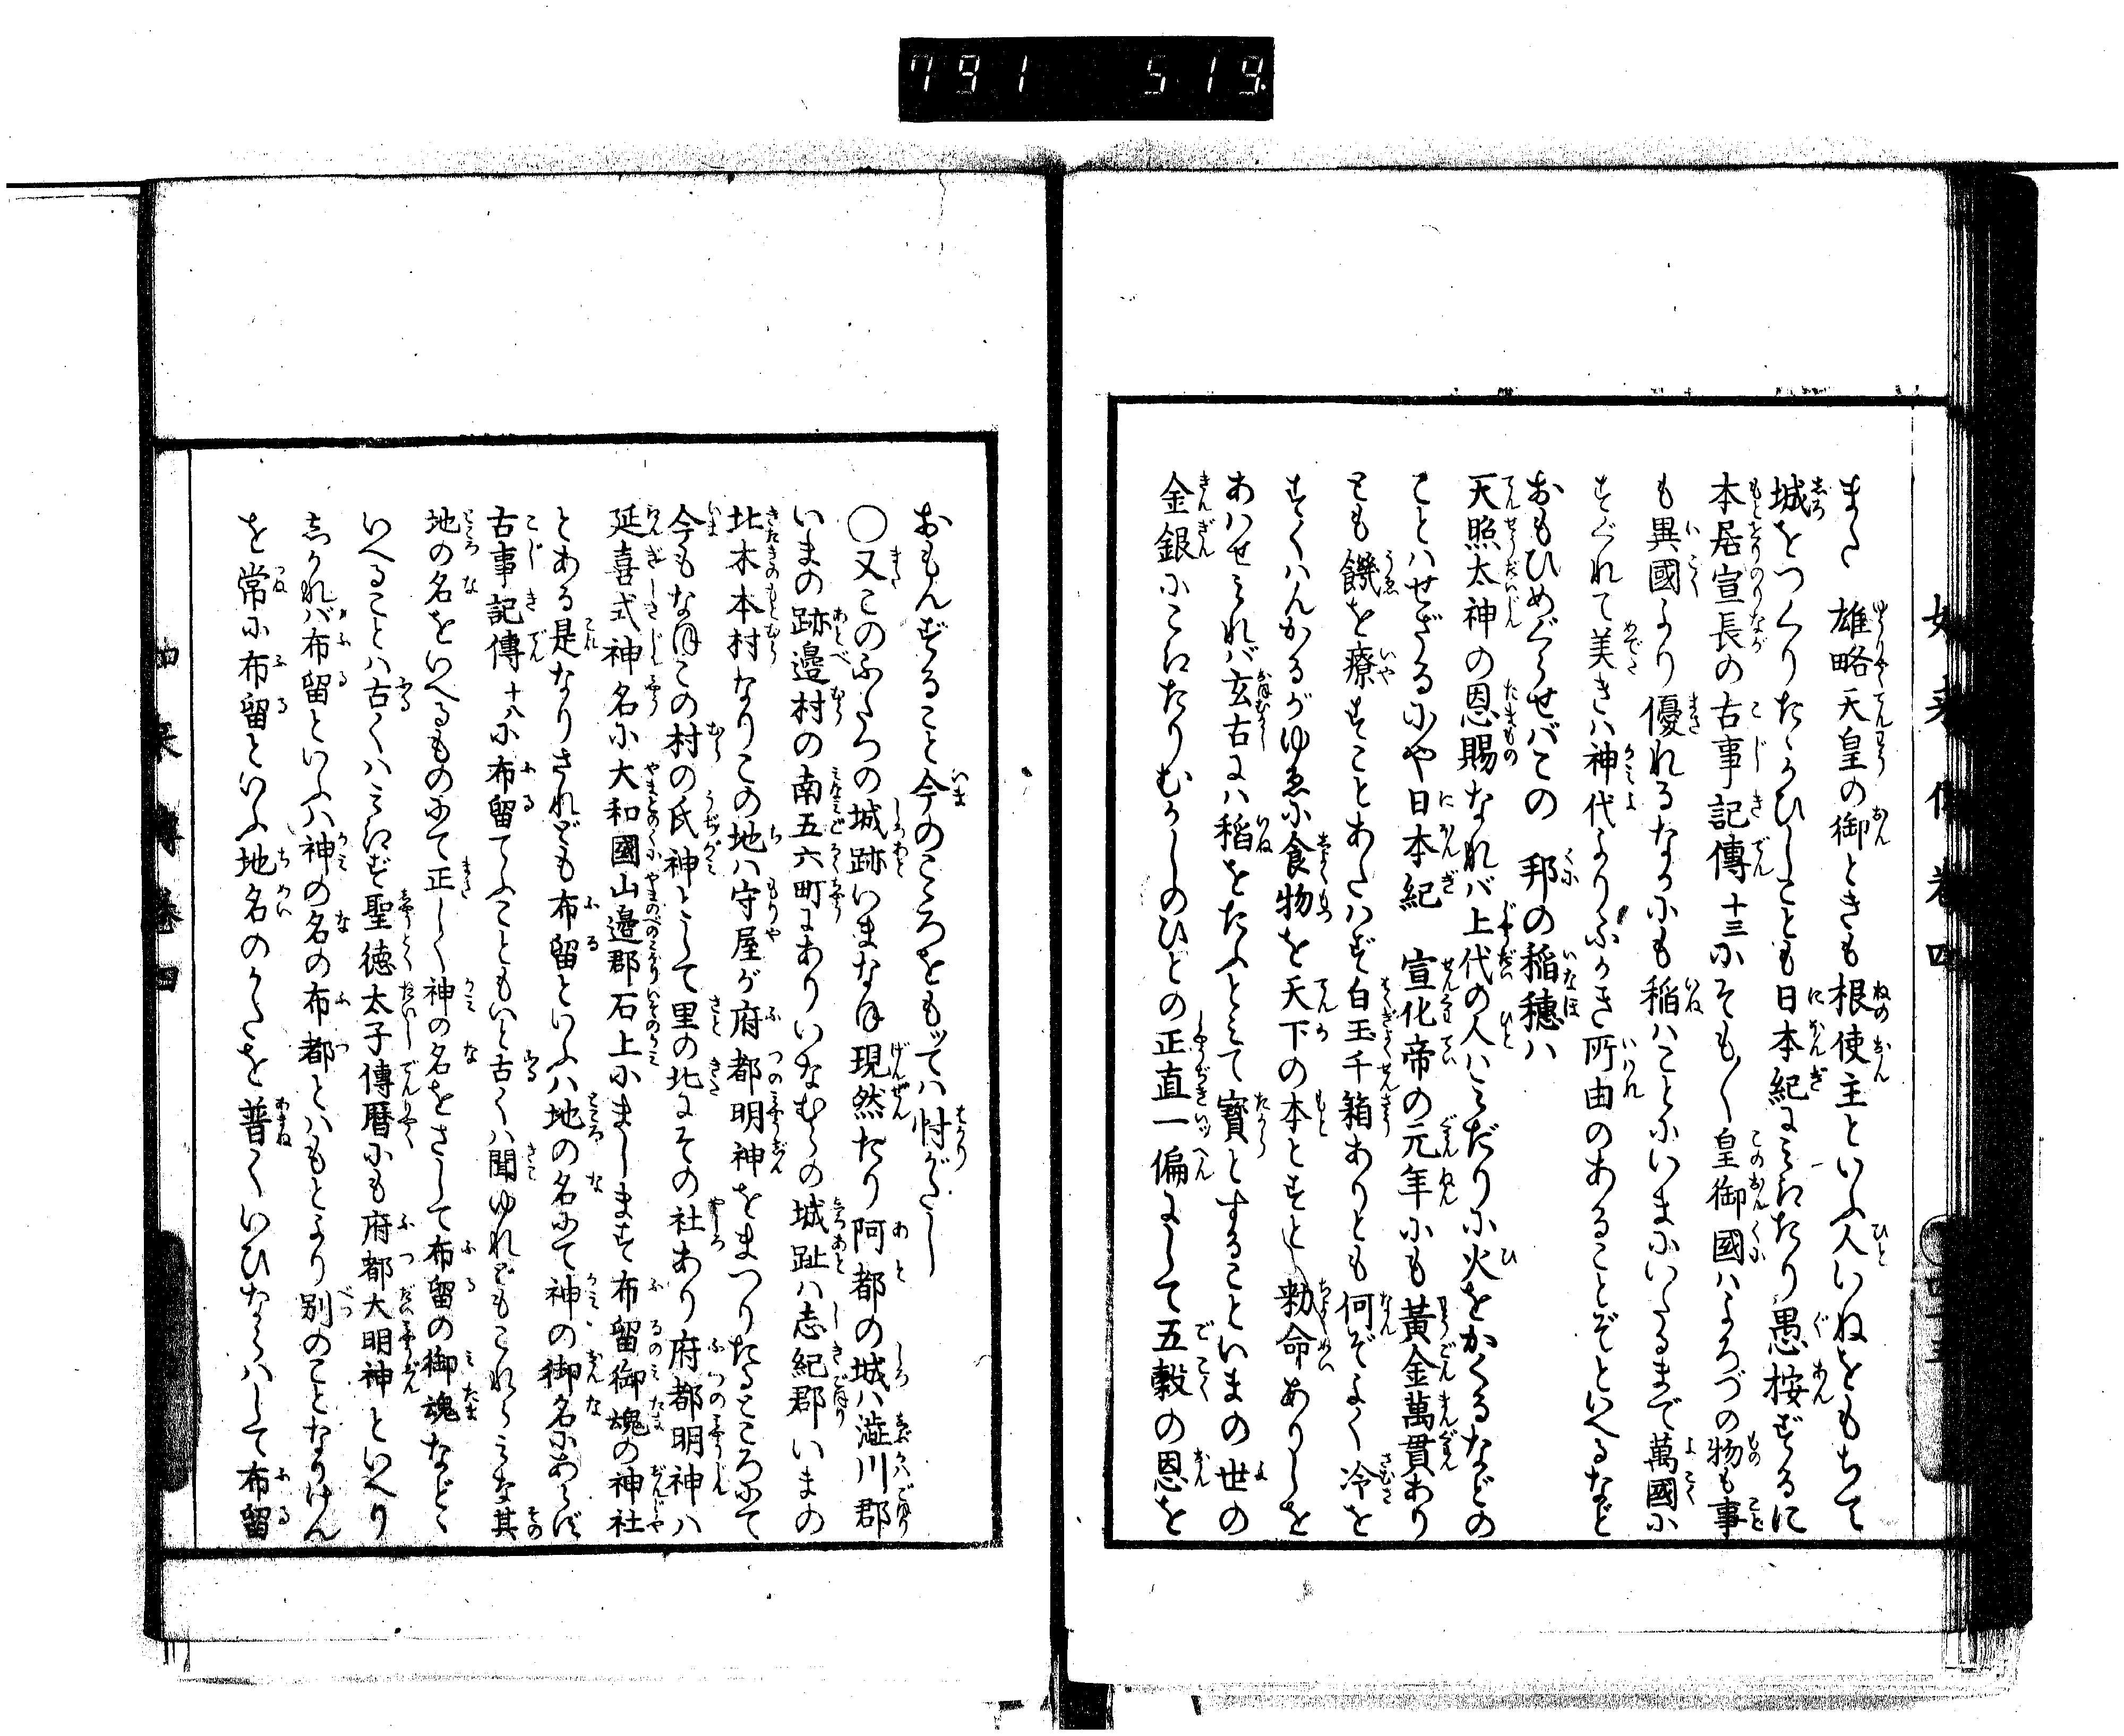 791 519
また　雄略天皇の御ときも根使主といふ人いねをもちて
城をつくりたゝかひしことも日本紀にみえたり愚按ずるに
本居宣長の古事記傳十三にそも〱皇御國はよろづの物も事
も異國より優れるなかにも稲はことにいまにいたるまで萬國に
すぐれて美きは神代よりふかき所由のあることぞといへるなど
おもひめぐらせばこの　邦の稲穂は
天照太神の恩賜なれバ上代の人はみだりに火をかくるなどの
ことはせざるにや日本紀　宣化帝の元年にも黄金萬貫あり
とも饑を療すことあたはず白玉千箱ありとも何ぞよく冷を
すくはんかるがゆゑに食物を天下の本とすと勅命ありしを
あはせみれバ玄古には稲をたふとみて寳とすることいまの世の
金銀にこえたりむかしのひとの正直一偏にして五穀の恩を
おもんずること今のこゝろをもッては忖がたし
〇又このふたつの城跡いまなほ現然たり阿都の城は澁川郡
いまの跡邉村の南五六町にありいなむらの城趾は志紀郡いまの
北木本村なりこの地は守屋が府都明神をまつりたるところにて
今もなほこの村の氏神として里の北にその社あり府都明神は
延喜式神名に大和國山邉郡石上にまします布留御魂の神社
とある是なりされども布留といふは地の名にて神の御名にあらず
古事記傳十八に布留てふこともいと古くは聞ゆれどもこれらみな其
地の名をいへるものにて正しく神の名をさして布留の御魂などゝ
いへることは古くはみえず聖徳太子傳暦にも府都大明神といへり
しかれバ布留といふは神の名の布都とはもとより別のことなりけん
を常に布留といふ地名のかたを普くいひならはして布留